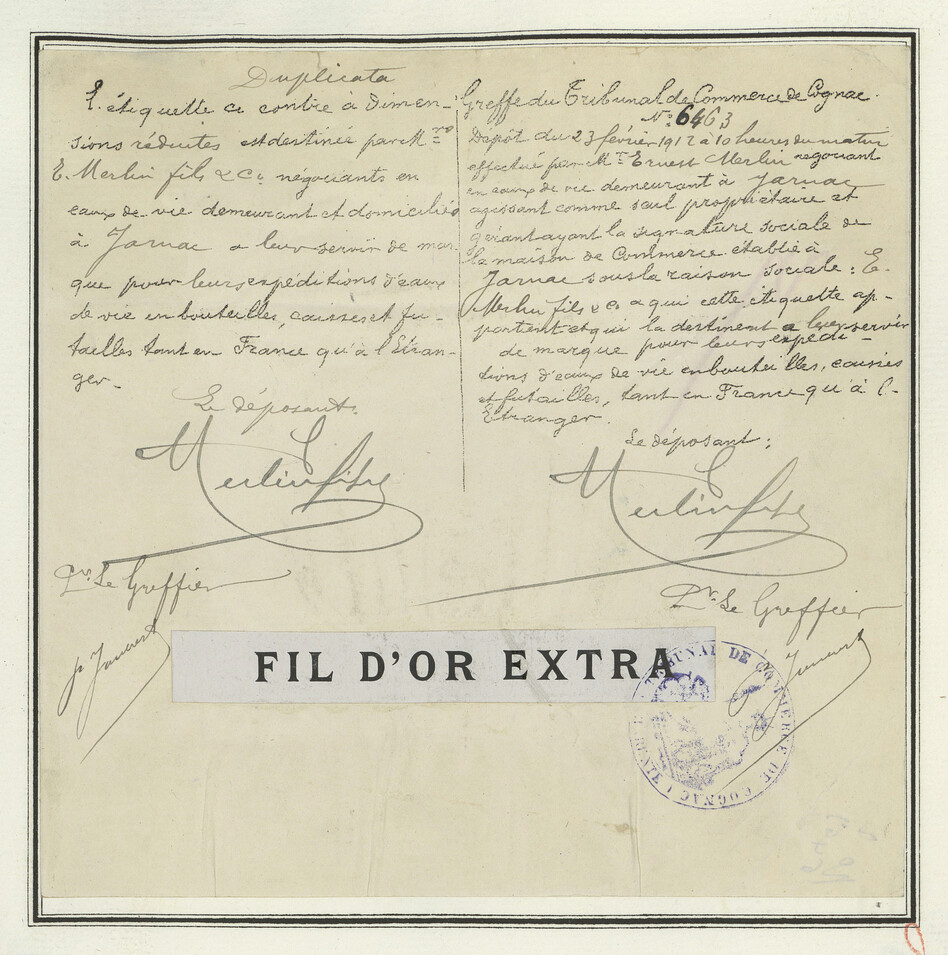 Duplicata
L'étiquette ci contre à dimen-
sions réduites est destinée par Mrs
E. Merlin fils & Ce négociants en
eaux de vie demeurant et domiciliés
à Jarnac a leur servir de mar-
que pour leurs expéditions d'eaux
de vie en bouteilles, caisses et fu-
tailles tant en France qu'à l'Etran-
ger.
Le déposant.
Merlin fils
Pr. Le Greffier
Greffe du Tribunal de Commerce de Cognac.
No: 6463
Dépôt du 23 février 1912 à 10 heures du matin
effectué par Mr. Ernest Merlin négociant
en eaux de vie demeurant à Jarnac
agissant comme seul propriétaire et
gérant ayant la signature sociale de
la maison de Commerce établie à
Jarnac sous la raison sociale: E.
Merlin fils & Ce a qui cette étiquette ap-
partient et qui la destinent a leur servir
de marque pour leurs expédi-
tions d'eaux de vie en bouteilles, caisses
et futailles, tant en France qu'à l'
Etranger.
Le déposant:
Merlin fils
Pr. Le Greffier
FIL D'OR EXTRA
TRIBUNAL DE COMMERCE DE COGNAC